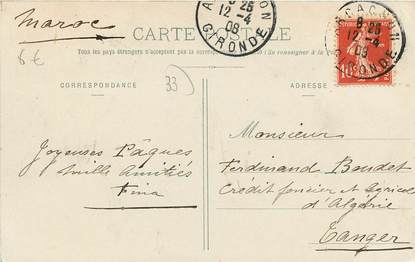 Maroc
CARTE POSTALE
Tous les pays étrangers n'acceptent pas la correspondance (Se renseigner à la
6 €
33
CORRESPONDANCE
ADRESSE
8 25
12-4
08
GIRONDE
ARCACHON
8 25
12-4
09
GIRONDE
10
Joyeuses Pâques
mille amitiés
Fina
Monsieur
Ferdinand Boudet
Crédit foncier et agricole
d'Algérie
Tanger